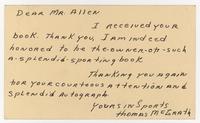 Dear Mr. Allen
I received your
book. Thank you, I am indeed
honored to be the-owner-of-such
a-splendid-sporting book
Thanking you again
for your courteous attention and
splendid autograph.
Yours in Sports
Thomas McGrath